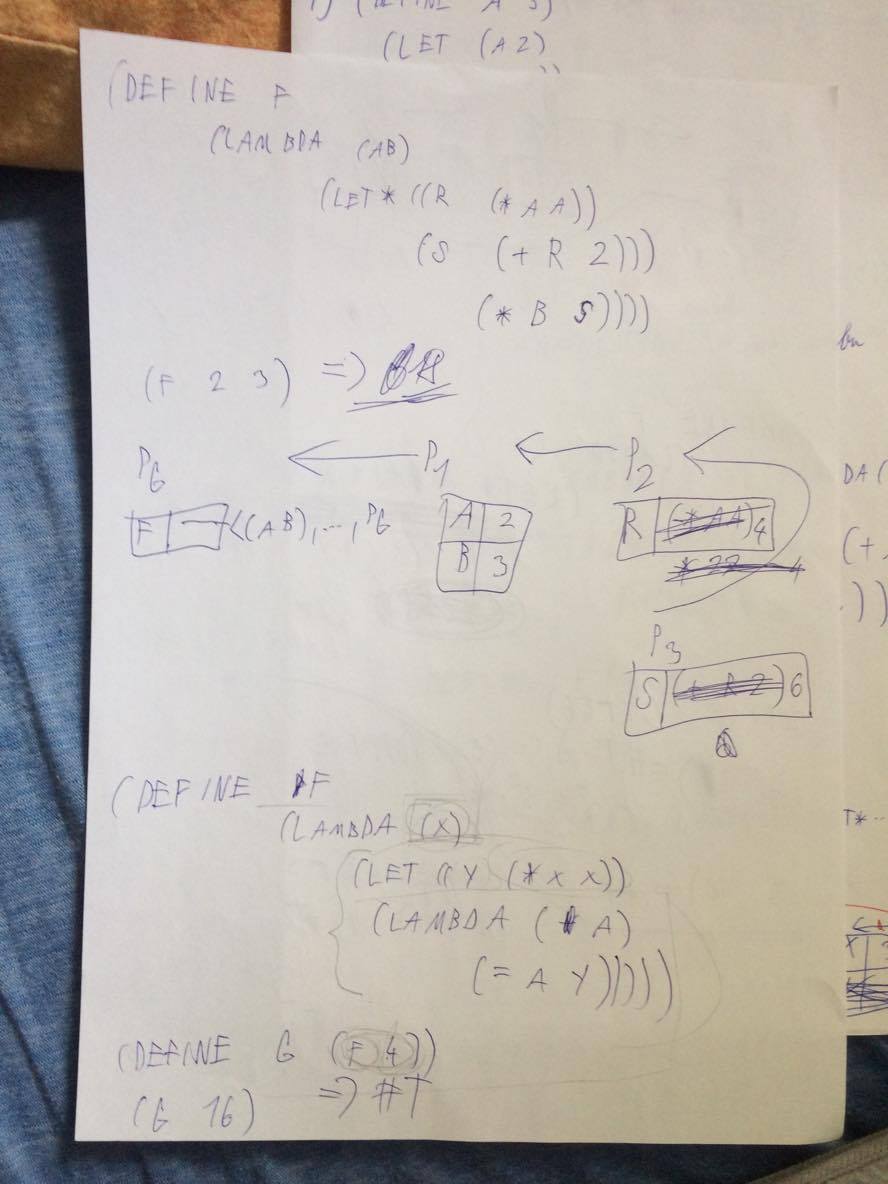 (DEFINE A 3)
(LET (A 2)
(DEFINE F
(LAMBDA (AB)
(LET* ((R (* A A))
(S (+ R 2)))
(* B S))))
(F 2 3) =>
PG ← P1 ← P2
F <(AB), ..., PG
A 2
B 3
R (* AA) 4
* 22 4
P3
S (+ R 2) 6
(DEFINE F
(LAMBDA (X)
(LET ((Y (* X X))
(LAMBDA (A)
(= A Y)))))
(DEFINE G (F 4))
(G 16) => #T
DA (
(+
))
T* ..